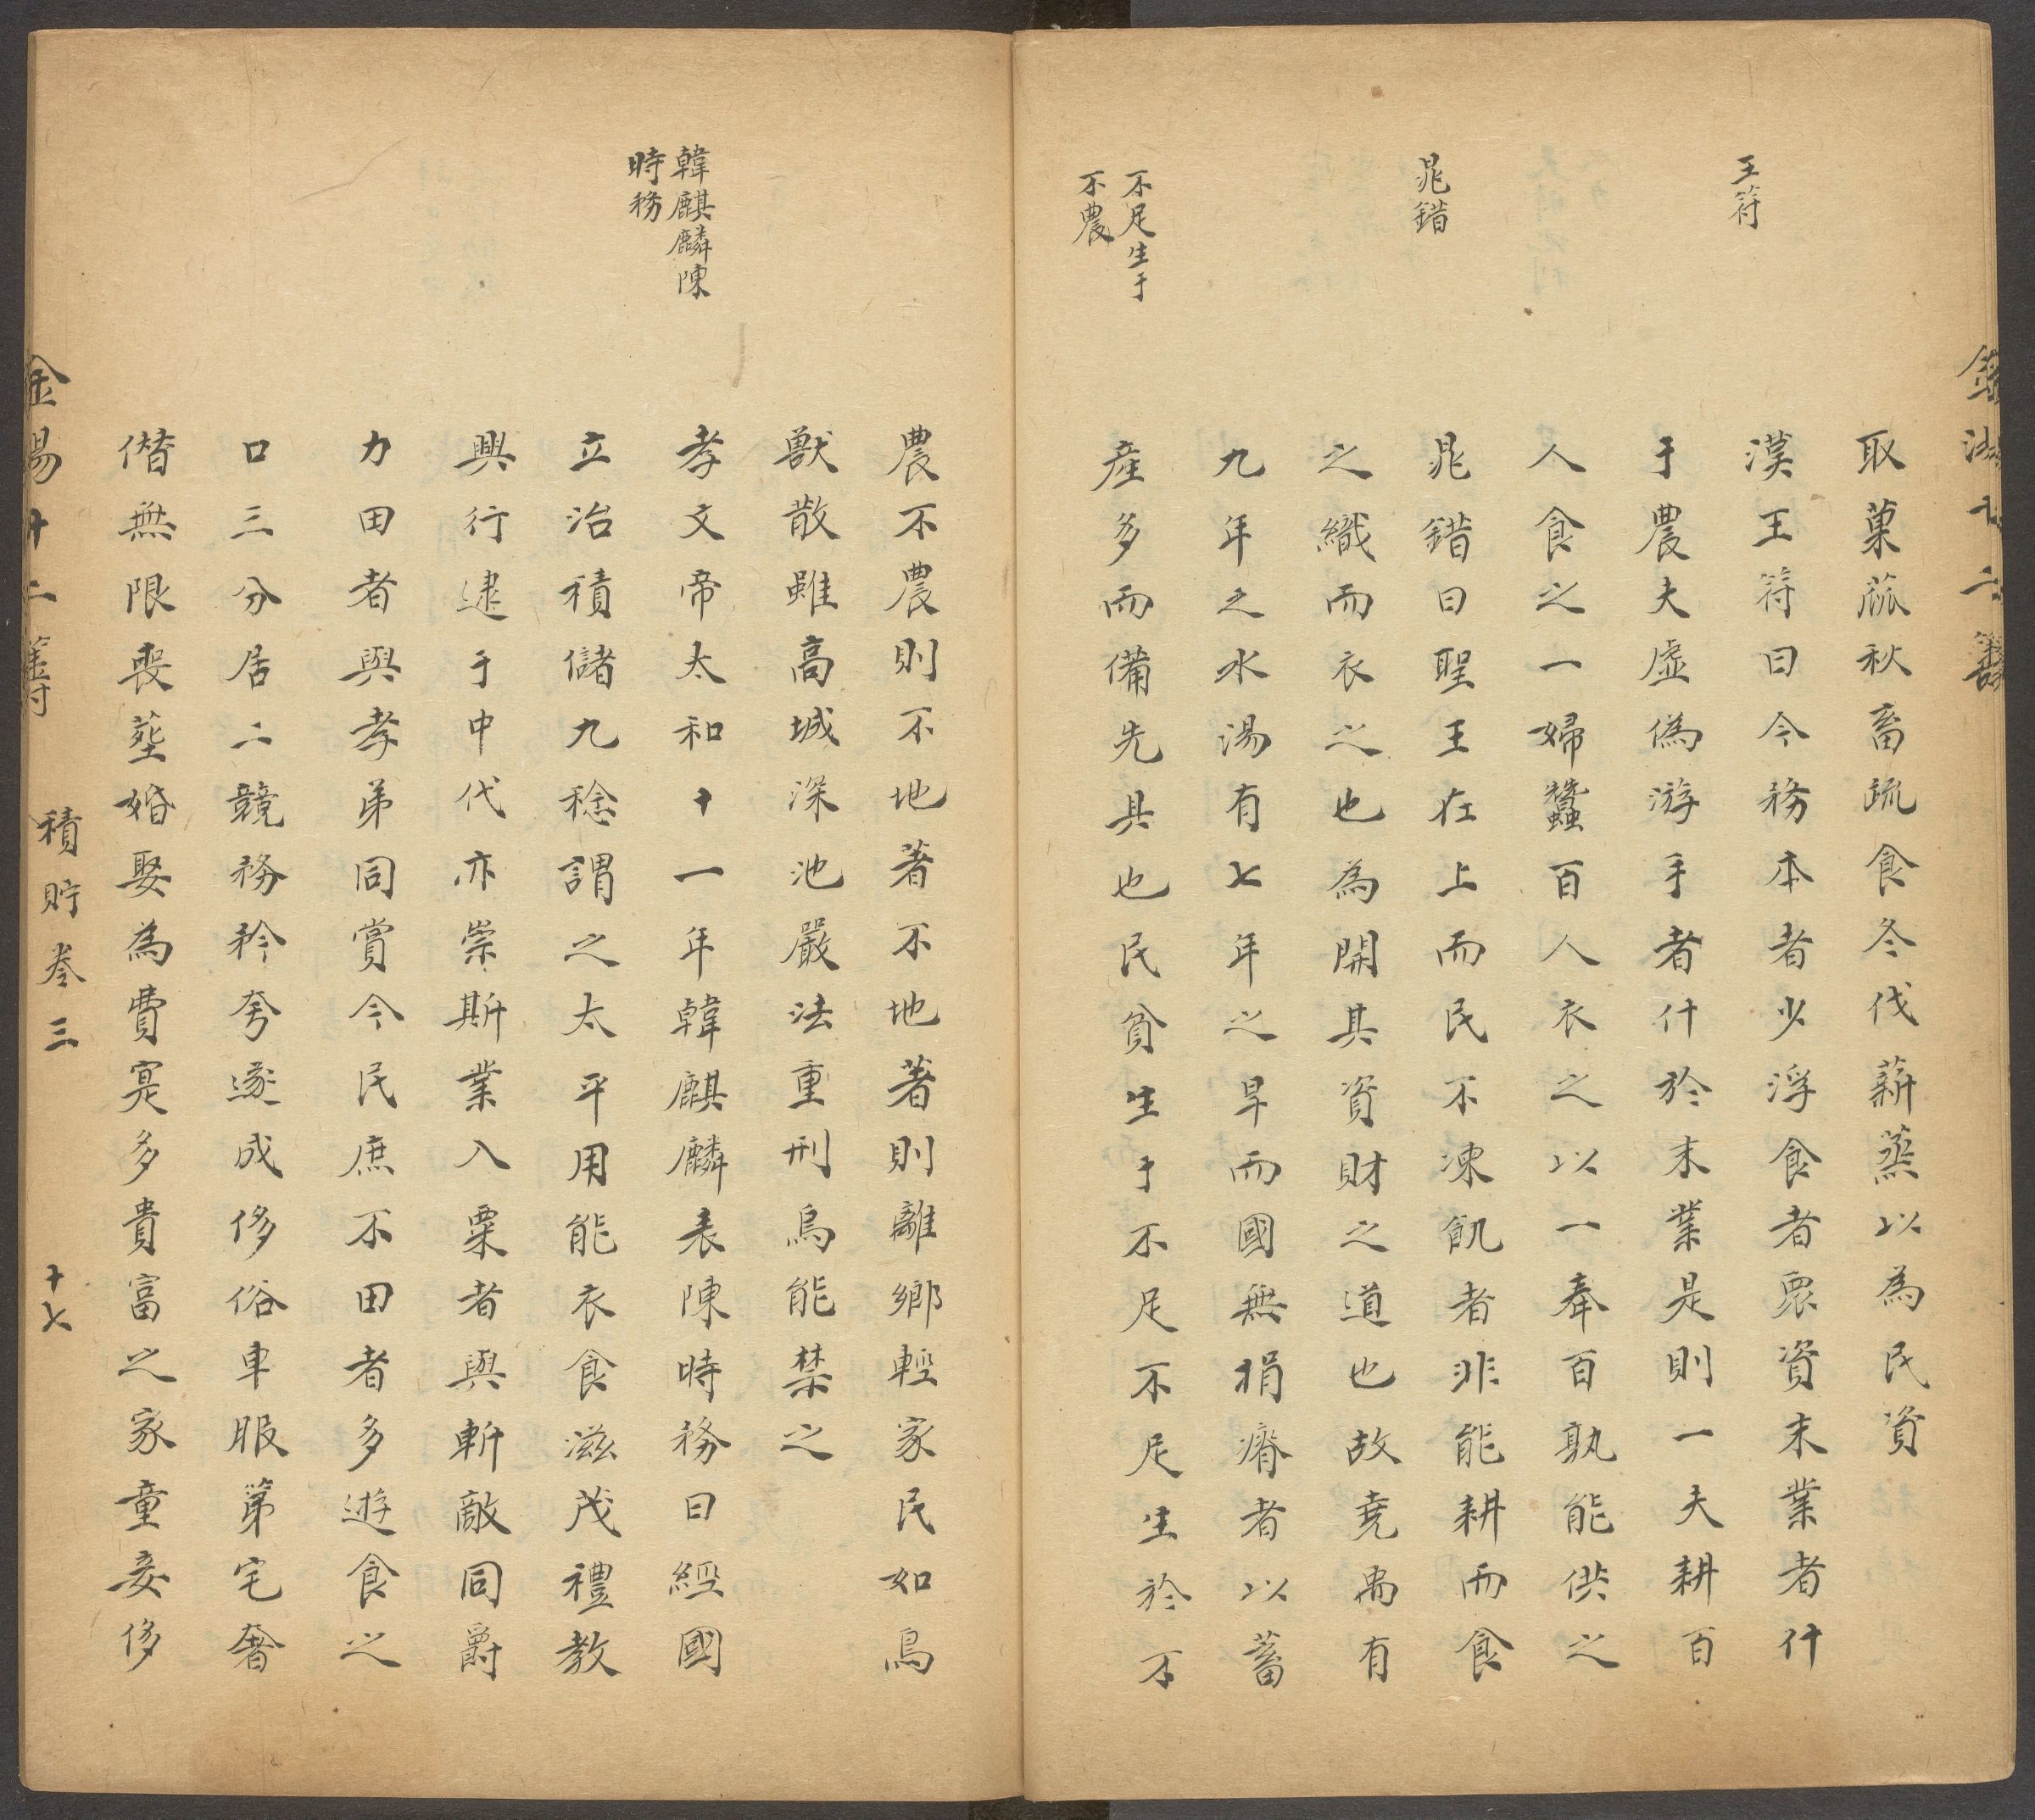 王符
晁錯
不足生于
不農
取菓蓏秋畜疏食冬伐薪蒸以為民資
漢王符曰今務本者少浮食者眾資末業者什
于農夫虛偽游手者什於末業是則一夫耕百
人食之一婦蠶百人衣之以一奉百孰能供之
晁錯曰聖王在上而民不凍飢者非能耕而食
之織而衣之也為開其資財之道也故堯禹有
九年之水湯有七年之旱而國無捐瘠者以蓄
產多而備先具也民貧生于不足不足生於不
韓麒麟陳
時務
農不農則不地著不地著則離鄉輕家民如鳥
獸散雖高城深池嚴法重刑烏能禁之
孝文帝太和十一年韓麒麟表陳時務曰經國
立治積儲九稔謂之太平用能衣食滋茂禮教
興行逮于中代亦崇斯業入粟者與斬敵同爵
力田者與孝弟同賞今民庶不田者多遊食之
口三分居二競務矜夸遂成侈俗車服第宅奢
僭無限喪塟婚娶為費寔多貴富之家童妾侈
金湯十二籌 積貯卷三 十七